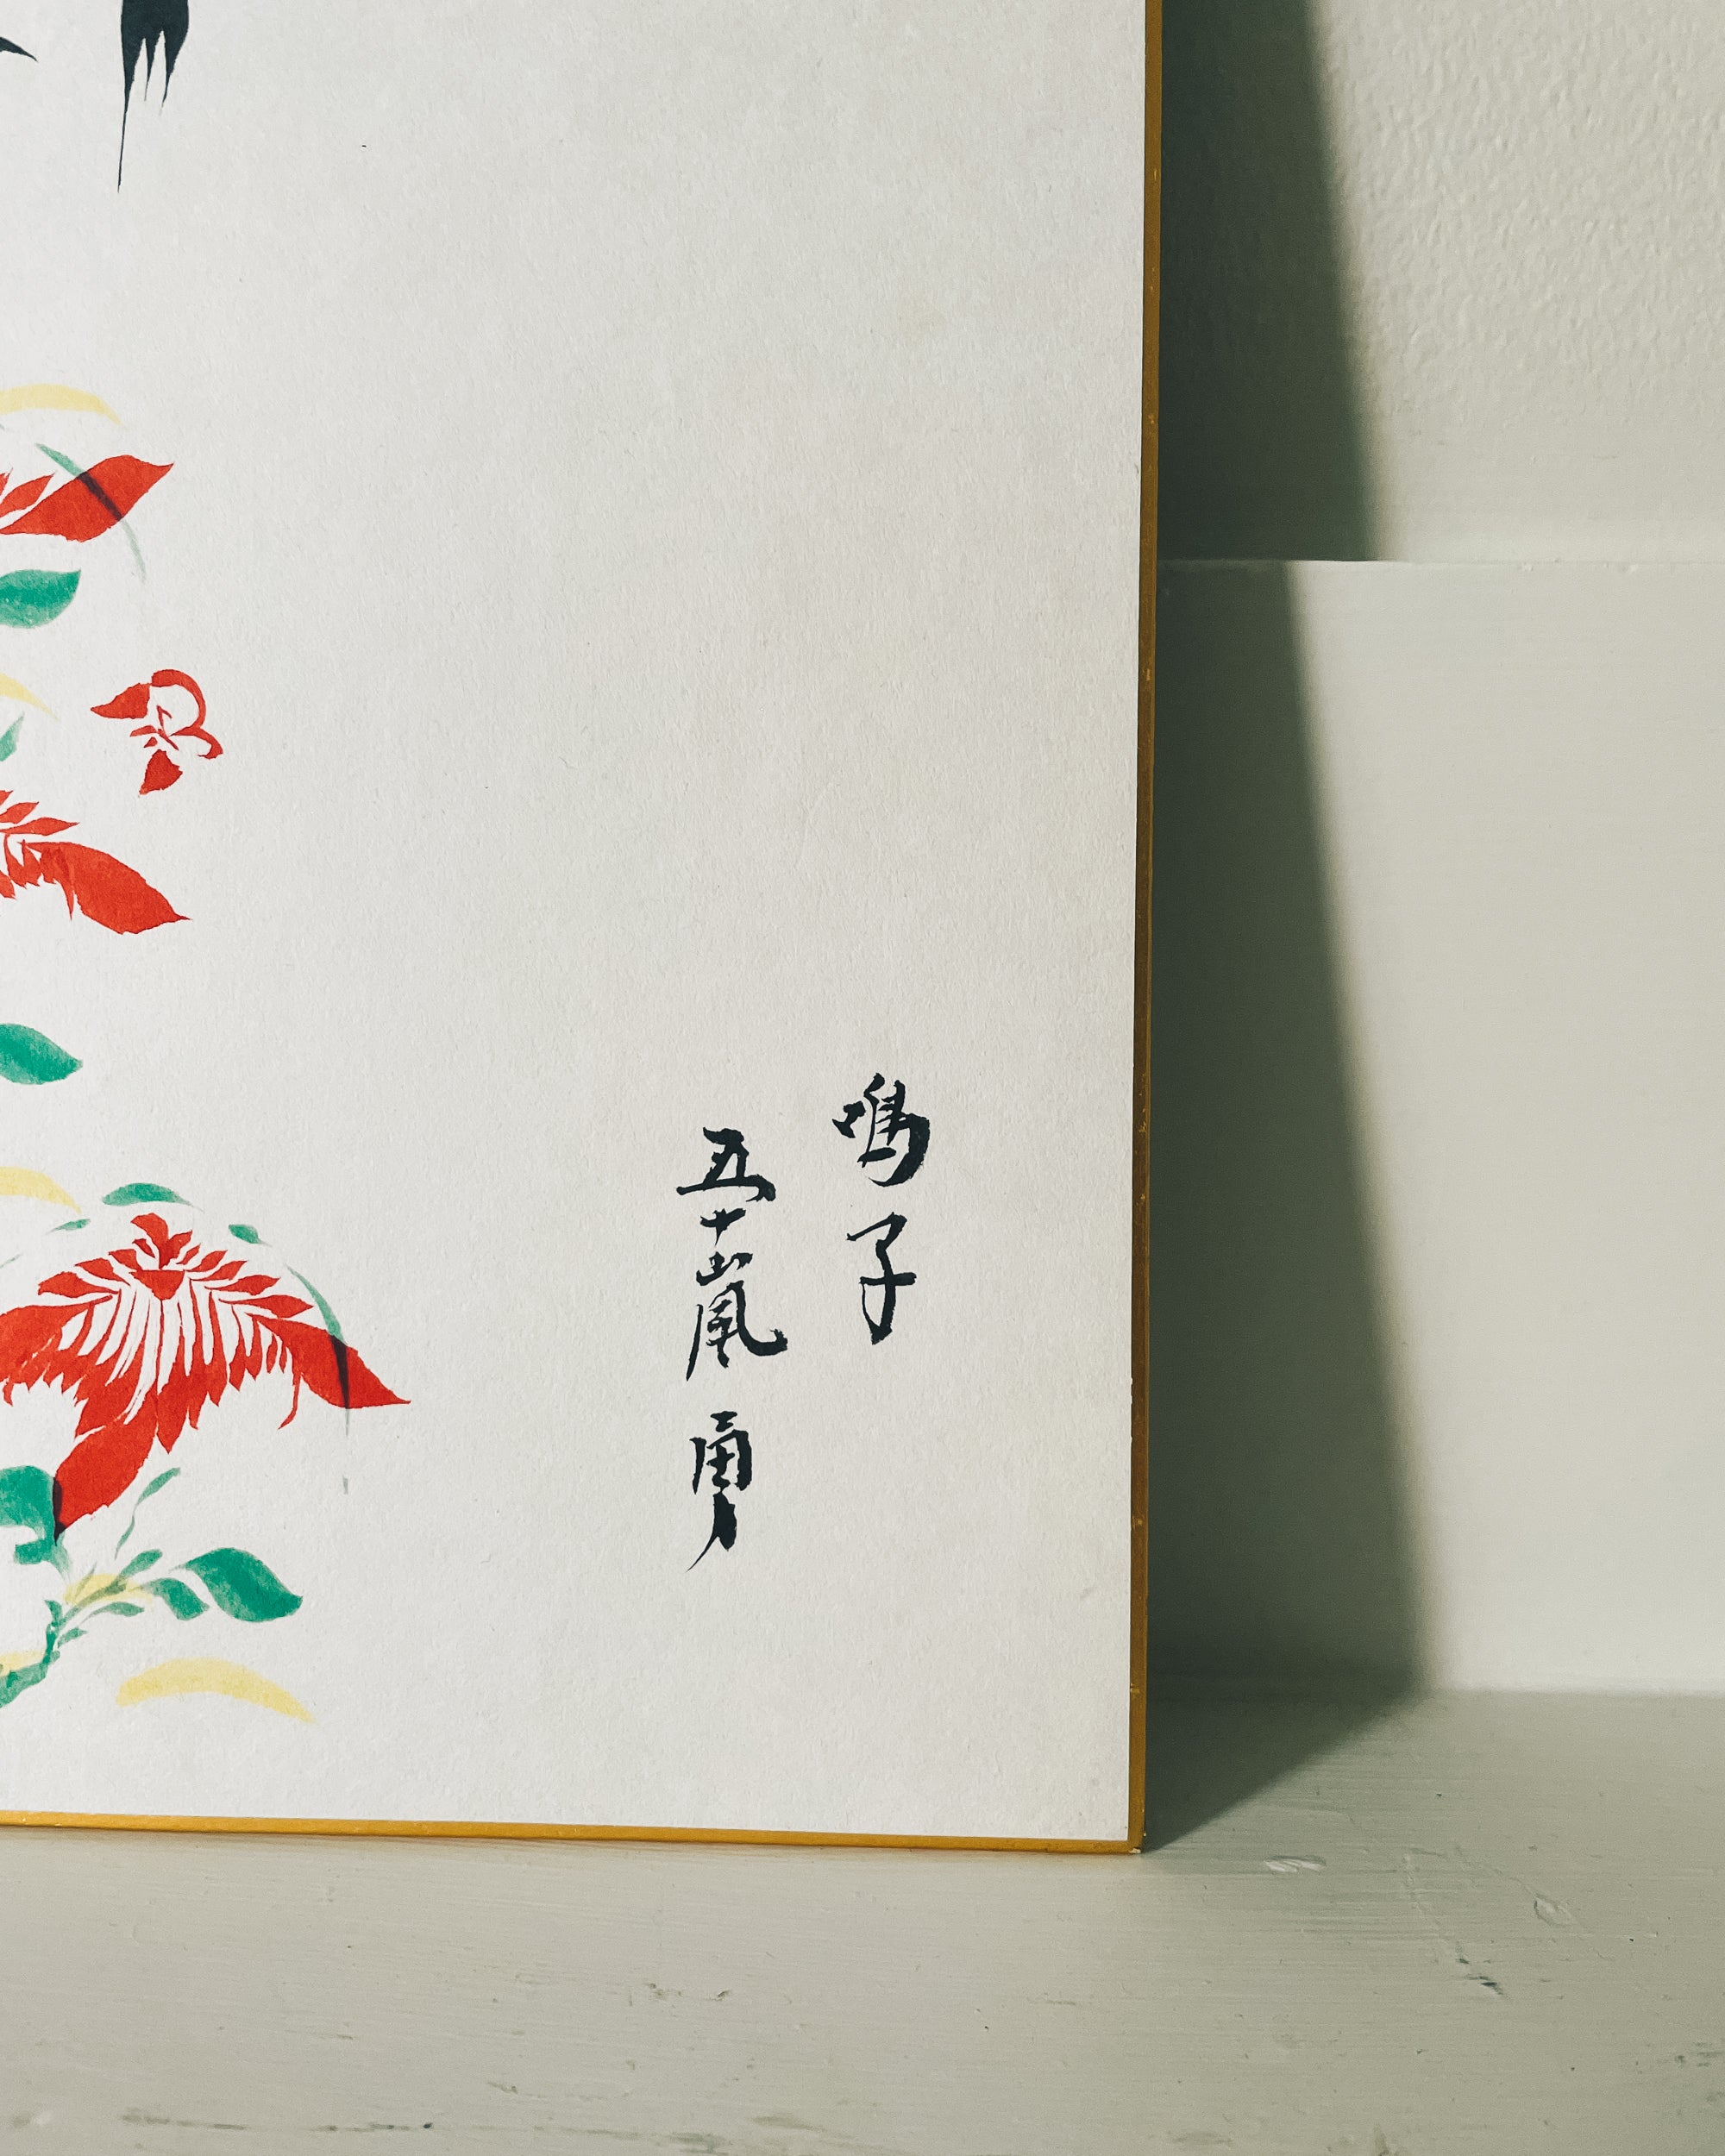 鳴子
五十嵐 勇